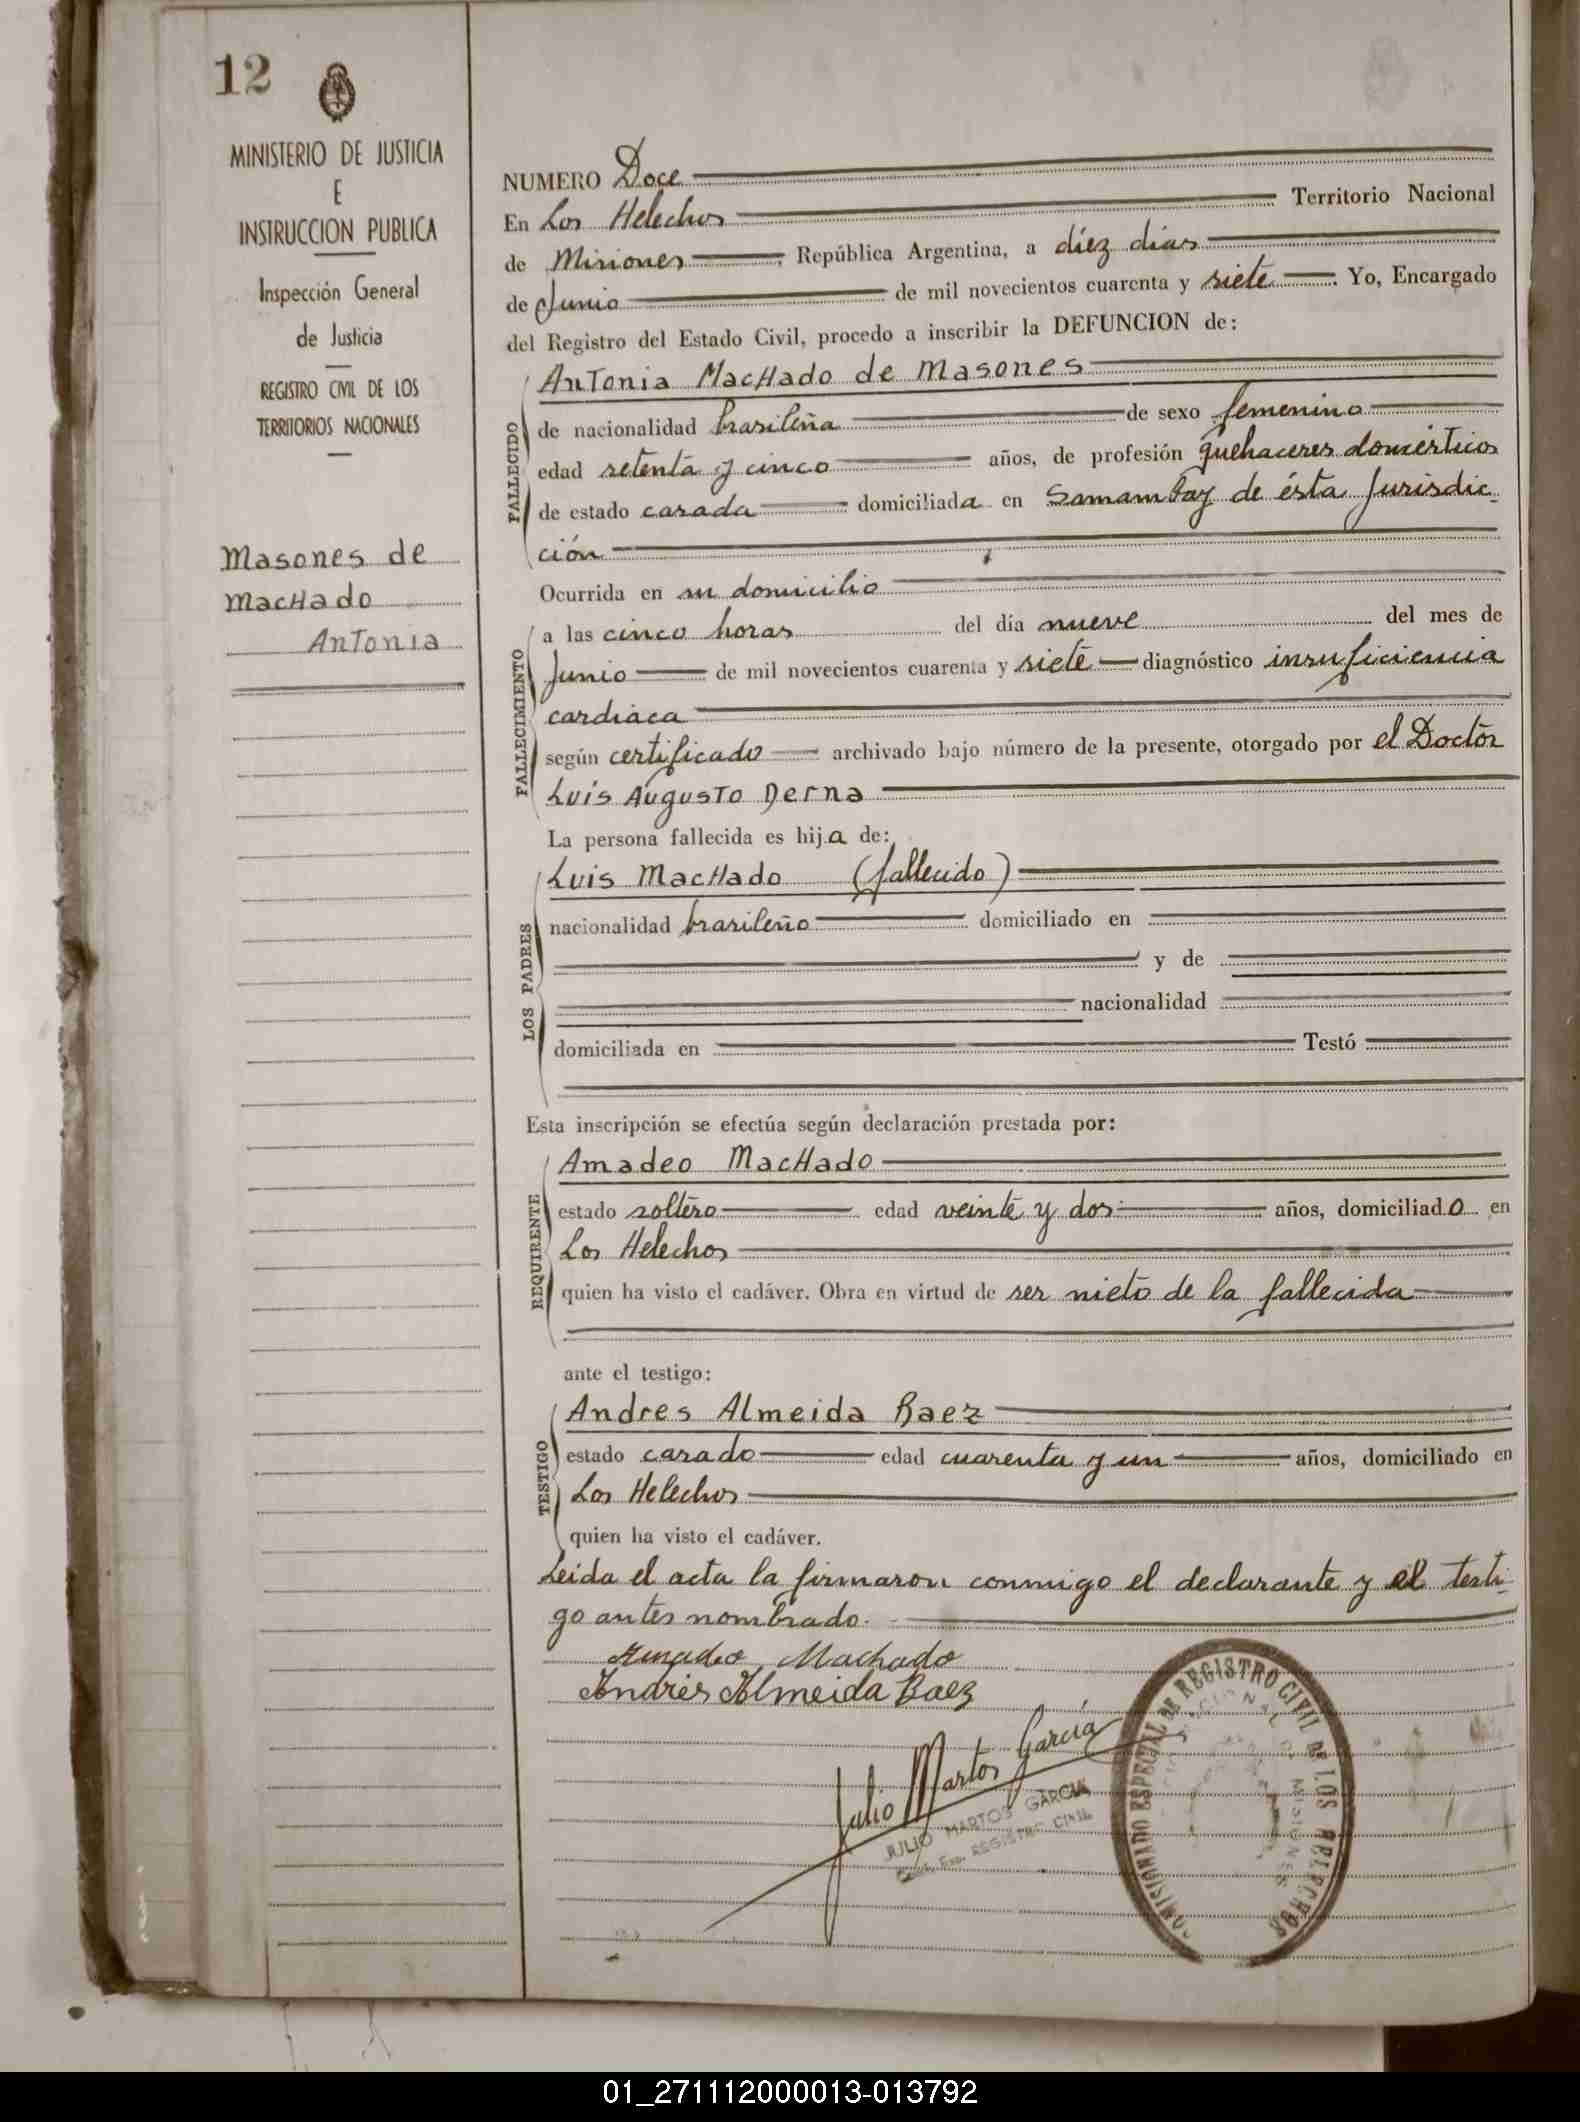 12
MINISTERIO DE JUSTICIA
E
INSTRUCCION PUBLICA
Inspección General
de Justicia
REGISTRO CIVIL DE LOS
TERRITORIOS NACIONALES
Masones de
Machado
Antonia
NUMERO Doce
En Los Helechos Territorio Nacional
de Misiones, República Argentina, a diez dias
de Junio de mil novecientos cuarenta y siete. Yo, Encargado
del Registro del Estado Civil, procedo a inscribir la DEFUNCION de:
FALLECIDO
Antonia Machado de Masones
de nacionalidad brasileña de sexo femenino
edad setenta y cinco años, de profesión quehaceres domésticos
de estado casada domiciliada en Samambay de ésta Jurisdic-
ción
FALLECIMIENTO
Ocurrida en su domicilio
a las cinco horas del día nueve del mes de
Junio de mil novecientos cuarenta y siete diagnóstico insuficiencia
cardiaca
según certificado archivado bajo número de la presente, otorgado por el Doctor
Luis Augusto Derna
La persona fallecida es hija de:
LOS PADRES
Luis Machado (fallecido)
nacionalidad brasileño domiciliado en
y de
nacionalidad
domiciliada en Testó
Esta inscripción se efectúa según declaración prestada por:
REQUIRENTE
Amadeo Machado
estado soltero edad veinte y dos años, domiciliado en
Los Helechos
quien ha visto el cadáver. Obra en virtud de ser nieto de la fallecida
ante el testigo:
TESTIGO
Andres Almeida Baez
estado casado edad cuarenta y un años, domiciliado en
Los Helechos
quien ha visto el cadáver.
Leida el acta la firmaron conmigo el declarante y el testi-
go antes nombrado.
Amadeo Machado
Andrés Almeida Baez
Julio Martos García
JULIO MARTOS GARCIA
REGISTRO CIVIL
COMISIONADO ESPECIAL DE REGISTRO CIVIL DE LOS HELECHOS
01_271112000013-013792